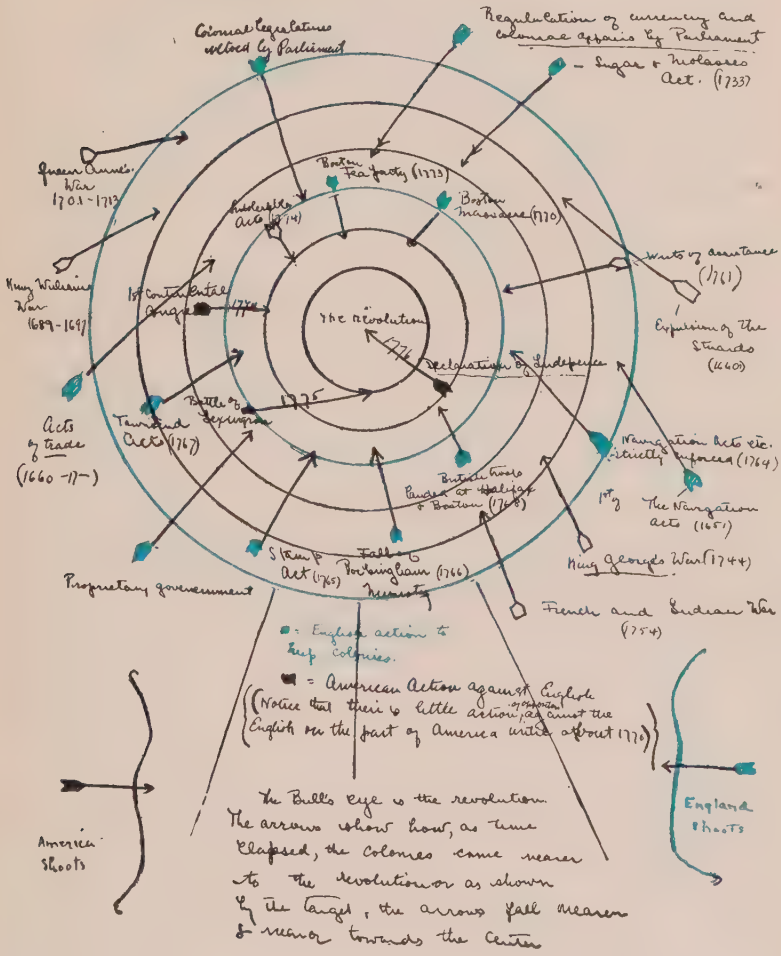 Colonial Legislatures
vetoed by Parliament
Regulation of currency and
colonial affairs by Parliament
- Sugar & Molasses
Act. (1733)
Queen Anne's
War
1701-1713
Boston
Tea Party (1773)
Intolerable
Acts (1774)
Boston
Massacre (1770)
Writs of assistance
(1761)
King William's
War
1689-1697
1st Continental
Congress 1774
The Revolution
1776
Declaration of Independence
Expulsion of The
Stuards
(1660)
Acts
of trade
(1660-17-)
Townsend
Acts (1767)
Battle of
Lexington
1775
Navigation Acts etc.
strictly enforced (1764)
British Troops
Landed at Halifax
& Boston (1768)
1st of
The Navigation
Acts (1651)
Proprietary government
Stamp
Act (1765)
Fall of
Rockingham (1766)
Ministry
King George's War (1744)
French and Indian War
(1754)
= English action to
keep colonies.
= American Action against English
(Notice that there is little action, or opposition, against the
English on the part of America until about 1770)
America
Shoots
England
Shoots
The Bull's eye is the revolution.
The arrows show how, as time
elapsed, the colonies came nearer
to the revolution or as shown
by the target, the arrows fall nearer
& nearer towards the center